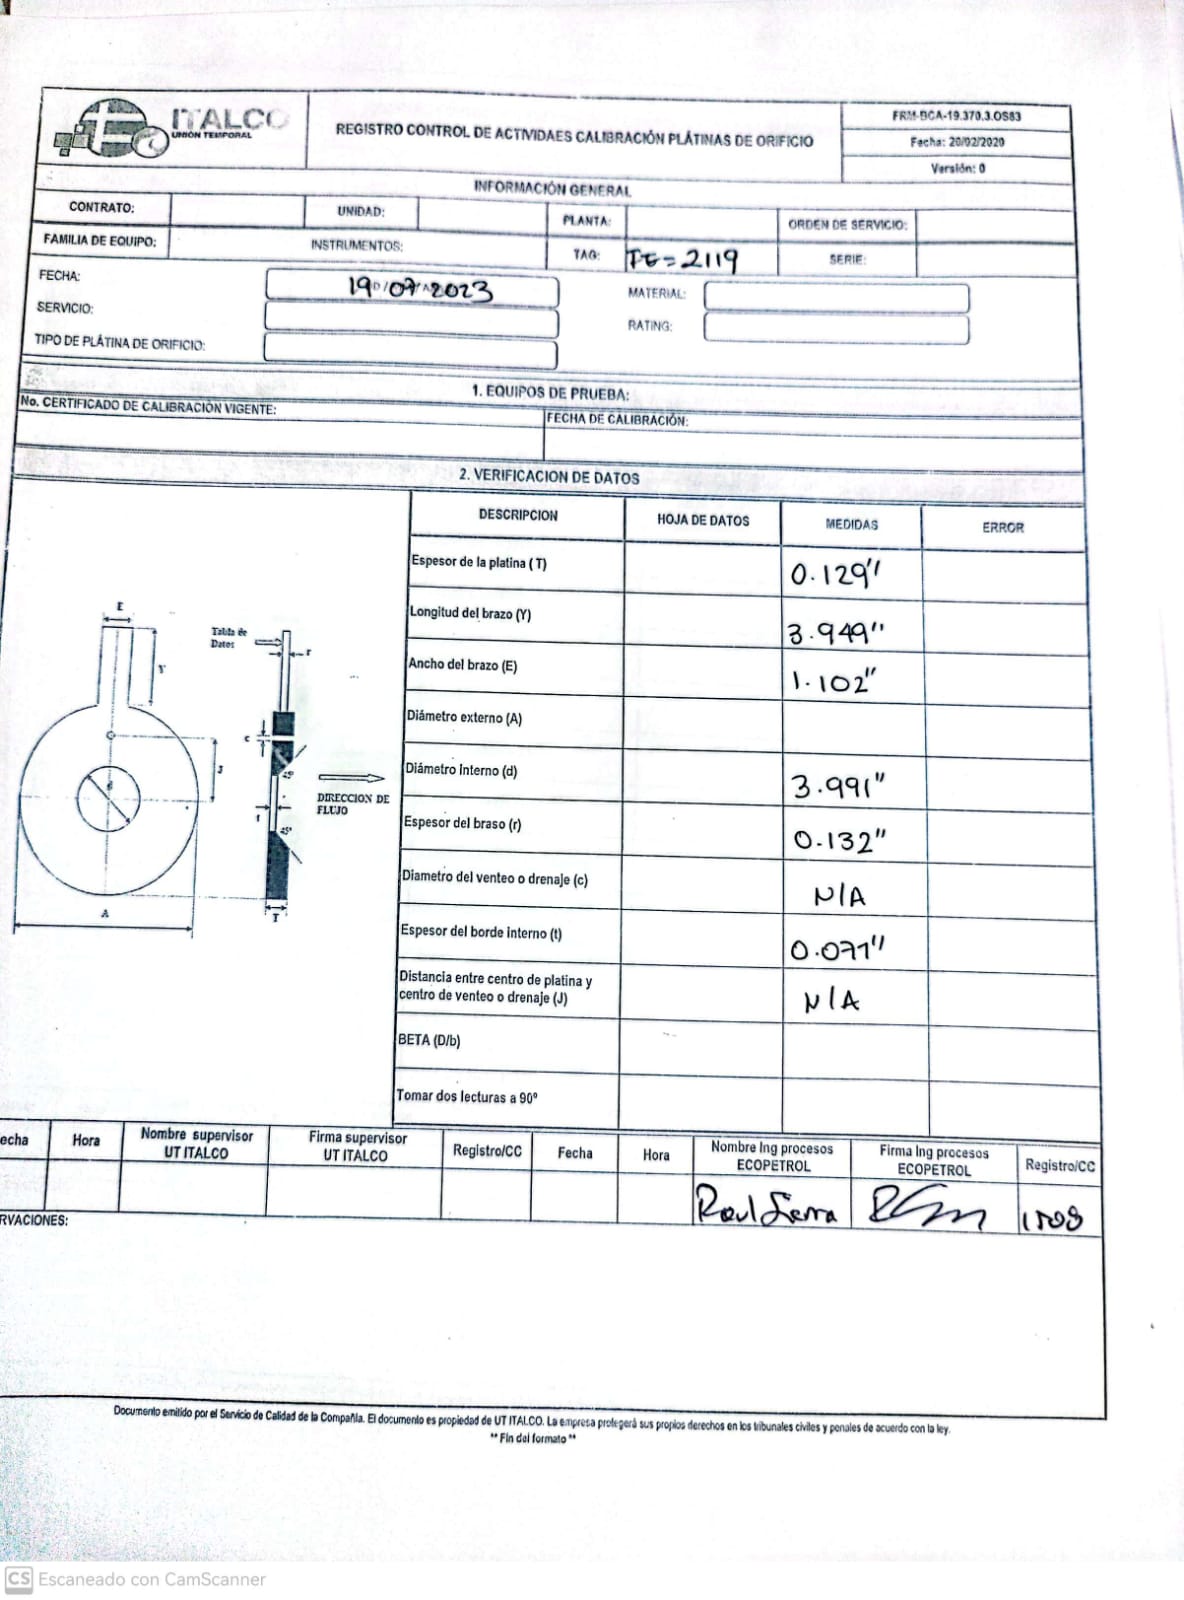 ITALCO
UNIÓN TEMPORAL
REGISTRO CONTROL DE ACTIVIDAES CALIBRACIÓN PLÁTINAS DE ORIFICIO
FRM-BCA-19.370.3.OS83
Fecha: 20/02/2020
Versión: 0
INFORMACIÓN GENERAL
CONTRATO: UNIDAD: PLANTA: ORDEN DE SERVICIO:
FAMILIA DE EQUIPO: INSTRUMENTOS: TAG: FE=2119 SERIE:
FECHA: 19/07/2023 MATERIAL:
SERVICIO: RATING:
TIPO DE PLÁTINA DE ORIFICIO:
1. EQUIPOS DE PRUEBA:
No. CERTIFICADO DE CALIBRACIÓN VIGENTE: FECHA DE CALIBRACIÓN:
2. VERIFICACION DE DATOS
DESCRIPCION HOJA DE DATOS MEDIDAS ERROR
Espesor de la platina (T) 0.129"
Longitud del brazo (Y) 3.949"
Ancho del brazo (E) 1.102"
Diámetro externo (A)
Diámetro Interno (d) 3.991"
Espesor del braso (r) 0.132"
Diametro del venteo o drenaje (c) N/A
Espesor del borde interno (t) 0.071"
Distancia entre centro de platina y
centro de venteo o drenaje (J) N/A
BETA (D/b)
Tomar dos lecturas a 90º
E
Y
J
d
A
Tabla de
Datos
r
c
45°
t
45°
T
DIRECCION DE
FLUJO
echa Hora Nombre supervisor
UT ITALCO Firma supervisor
UT ITALCO Registro/CC Fecha Hora Nombre Ing procesos
ECOPETROL Firma Ing procesos
ECOPETROL Registro/CC
Raul Sierra
RVACIONES:
Documento emitido por el Servicio de Calidad de la Compañía. El documento es propiedad de UT ITALCO. La empresa protegerá sus propios derechos en los tribunales civiles y penales de acuerdo con la ley.
** Fin del formato **
CS Escaneado con CamScanner